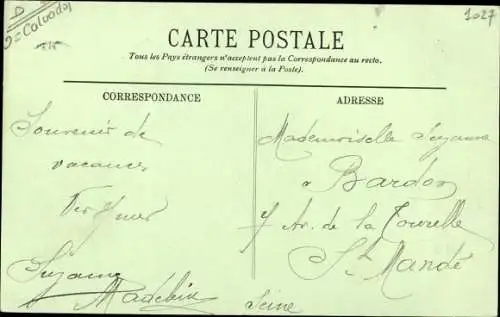 D
= Calvados
1027
CARTE POSTALE
Tous les Pays étrangers n'acceptent pas la Correspondance au recto.
(Se renseigner à la Poste).
CORRESPONDANCE
ADRESSE
Souvenir de
vacances
Ver s/mer
Suzanne
Mademoiselle Suzanne
Bardon
7 Av. de la Tourelle
St Mandé
Seine